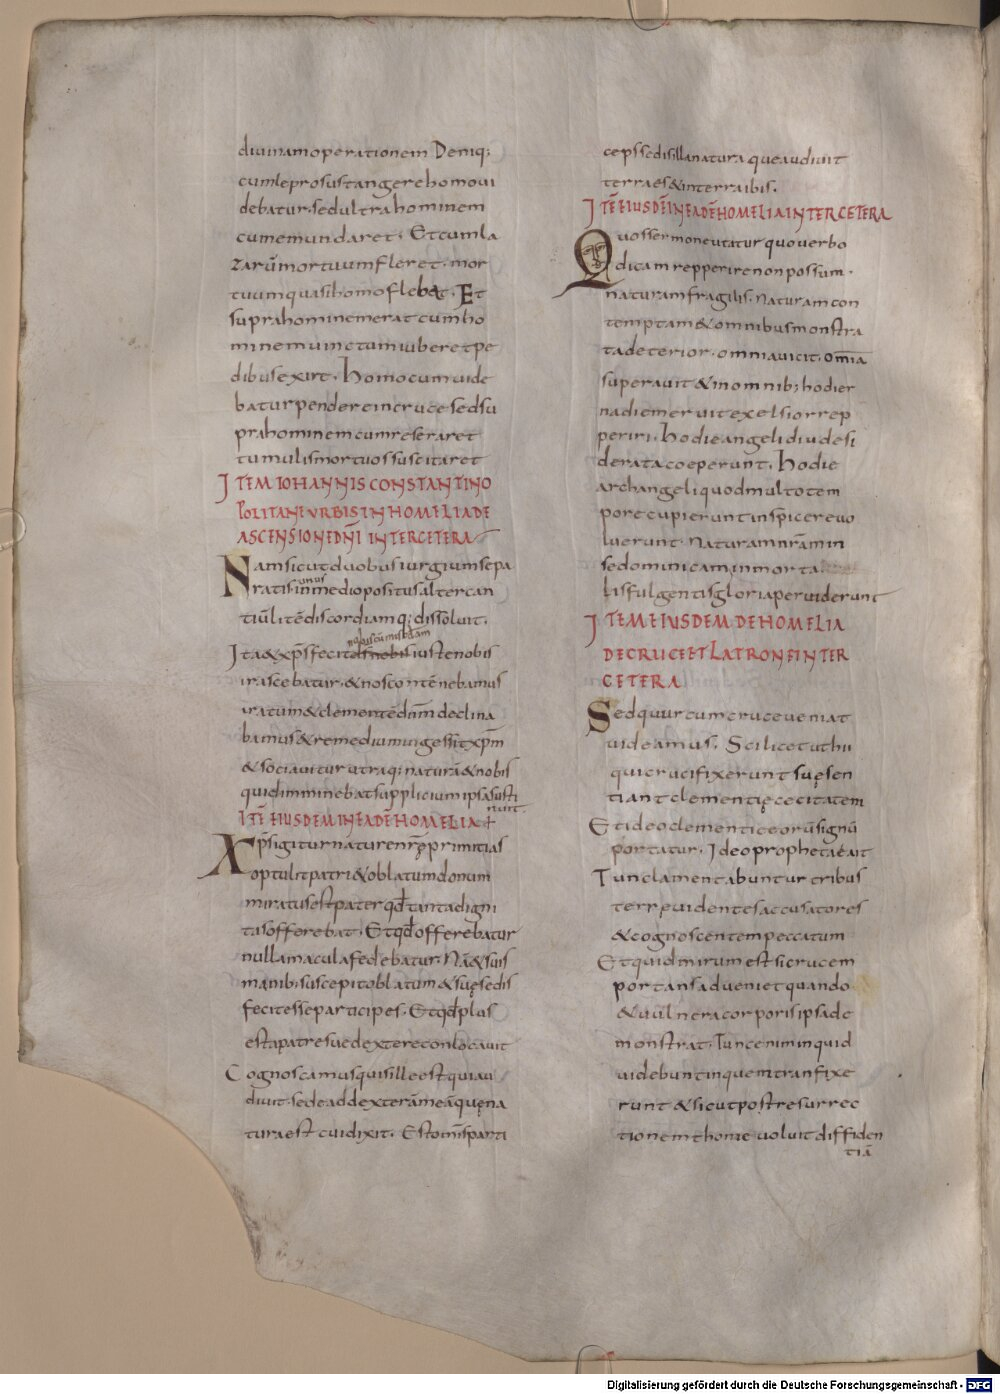 diuinam operationem Deniq;
cum leprosus tangere homo ui
debatur. sed ultra hominem
cum emundaret. Et cum la
zarū mortuum fleret. mor
tuum quasi homo flebat. Et
supra hominem erat cum ho
minem uinctum iuberet pe
dibus exire. Homo cum uide
batur pendere in cruce sed su
pra hominem cum reseraret
tumulis mortuos suscitaret
ITEM IOHANNIS CONSTANTINO
POLITANI URBIS IN HOMELIA DE
ASCENSIONE DNĪ INTER CETERA
Nam sicut duobus iurgium sepa
ratis unus in medio positus altercan
tiū litē discordiamq; dissoluit.
nobiscum isdam
Ita & xp̄s fecit ds nobis iuste nobis
irascebatur. & nos contēnebamus
iratum & clementē dnm̄ declina
bamus & remedium igessit xp̄m
& sociauitur utraq; naturā & nobis
quid imminebat supplicium ipsa susti
nuit.
ITĒ EIUSDEM IN EADĒ HOMELIA
Xp̄s igitur nature nr̄ę primitias
optulit patri & oblatum donum
miratus est pater qđ tanta digni
tas offerebat. Et qđ offerebatur
nulla macula fedebatur. Nā & suis
manib; suscepit oblatum & suę sedis
fecit esse participes. Et qđ plus
est a patre sue dextere conlocauit
Cognoscamus quis ille est qui au
diuit. sede ad dexterā meā quę na
tura est cui dixit. Esto mīs parti
ceps sed is illa natura que audiuit
terra es & in terra ibis.
ITĒ EIUSDĒ IN EADĒ HOMELIA INTER CETERA
Quos sermone utatur quo uerbo
dicam repperire non possum.
naturam fragilis. naturam con
temptam & omnibus monstra
ta deterior. omnia uicit. omīa
superauit & in omnib; hodier
na die meruit excelsior rep
periri. Hodie angeli diu desi
derata coeperunt. Hodie
archangeli quod multo tem
pore cupierunt inspicere uo
luerunt. Naturam nr̄am in
sede dominicam inmorta
lis fulgentis gloria peruiderunt
ITEM EIUSDEM DE HOMELIA
DE CRUCE ET LATRONE INTER
CETERA
Sed quur cum cruce ueniat
uideamus. Scilicet ut hii
qui crucifixerunt suę sen
tiant clementię cecitatem
Et ideo clementiae eorū signū
portatur. Ideo propheta ait
Tunc lamentabuntur tribus
terrę uidentes accusatores
& cognoscentem peccatum
Et quid mirum est si crucem
portans adueniet quando
& uulnera corporis ipsa de
monstrat. Tunc enim inquid
uidebunt in quem tranfixe
runt & sicut post resurrec
tionem thome uoluit diffiden
tiā
Digitalisierung gefördert durch die Deutsche Forschungsgemeinschaft - DFG